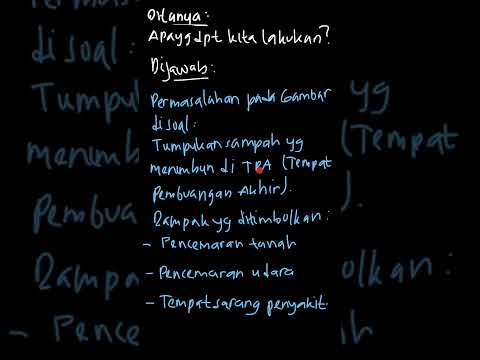 Ditanya:
Apa yg dpt kita lakukan?
Dijawab:
Permasalahan pada Gambar
di soal:
Tumpukan sampah yg
menimbun di TPA (Tempat
Pembuangan Akhir).
Dampak yg ditimbolkan:
- Pencemaran tanah
- Pencemaran udara
- Tempat sarang penyakit.